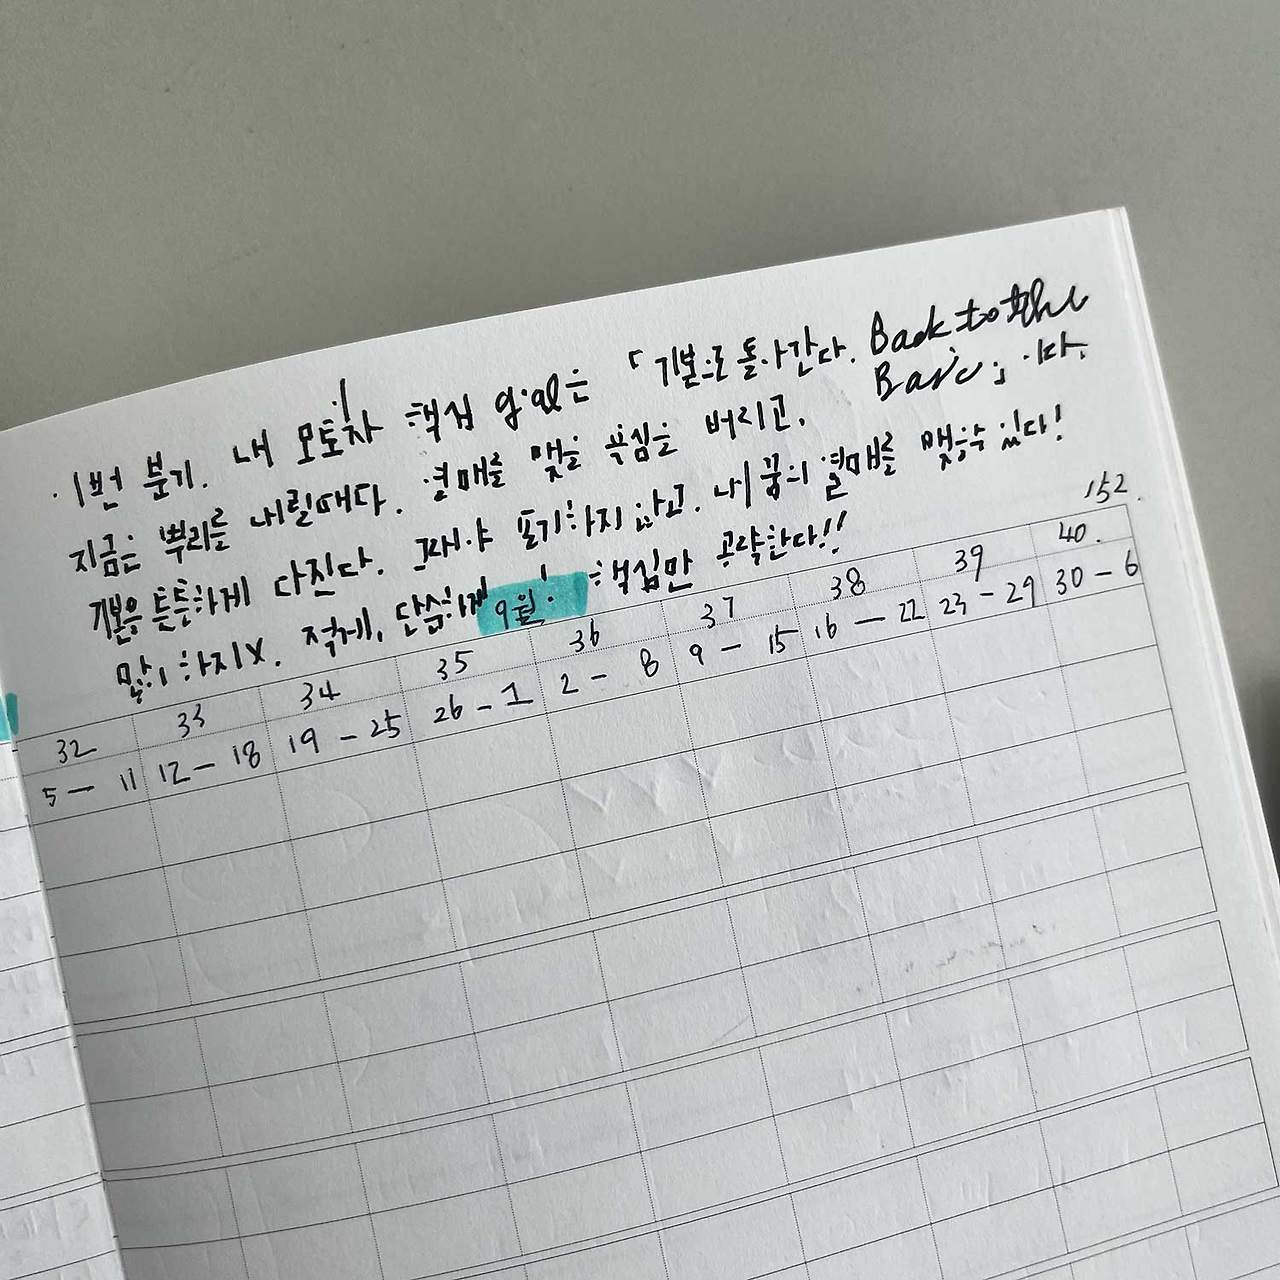 이번 분기. 내 모토자 핵심 goal은 「기본으로 돌아간다. Back to the Basic」이다.
지금은 뿌리를 내릴때다. 열매를 맺을 욕심을 버리고,
기본을 튼튼하게 다진다. 그래야 포기하지 않고, 내 꿈의 열매를 맺을수 있다!
많이 하지X. 적게, 단순하게 핵심만 공략한다!!
152.
9월.
32 33 34 35 36 37 38 39 40.
5 - 11 12 - 18 19 - 25 26 - 1 2 - 8 9 - 15 16 - 22 23 - 29 30 - 6